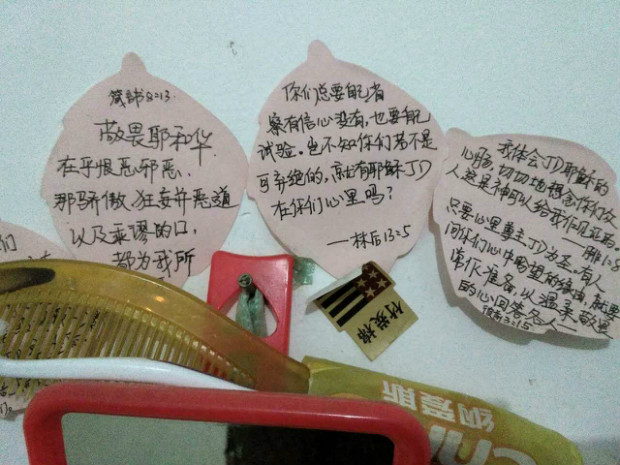 箴言8:13.
敬畏耶和华
在乎恨恶邪恶.
那骄傲.狂妄并恶道
以及乖谬的口.
都为我所
你们总要自己省
察有信心没有,也要自己
试验.岂不知你们若不是
可弃绝的,就有耶稣JD
在你们心里吗?
——林后13:5
我体会JD耶稣的
心肠,切切地想念你们众
人这是神可以给我作见证的.
——腓1:8
只要心里尊主JD为圣.有人
问你们心中盼望的缘由,就要
常作准备,以温柔敬畏
的心回答各人——
彼前3:15
们
竹炭棉
纳爱斯